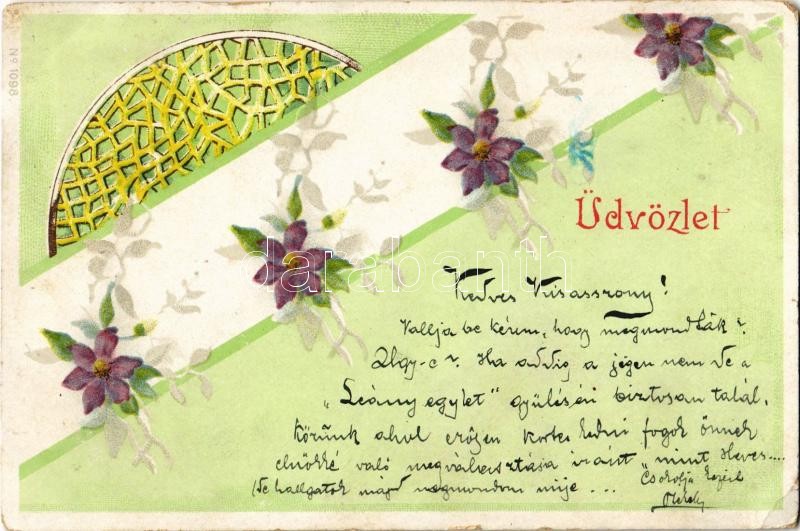 No 1098.
Üdvözlet
Kedves Kisasszony!
Vallja be kérem, hogy megmondták?
Úgy-e? Ha addig a jégen nem de a
"Leány egylet" gyűlésén biztosan talál.
körünk ahol erősen korteskedni fogok önnek
elnökké való megválasztása iránt "mint Heves....
(de hallgatok majd megmondom mije...
Csókolja kezeit
darabanth